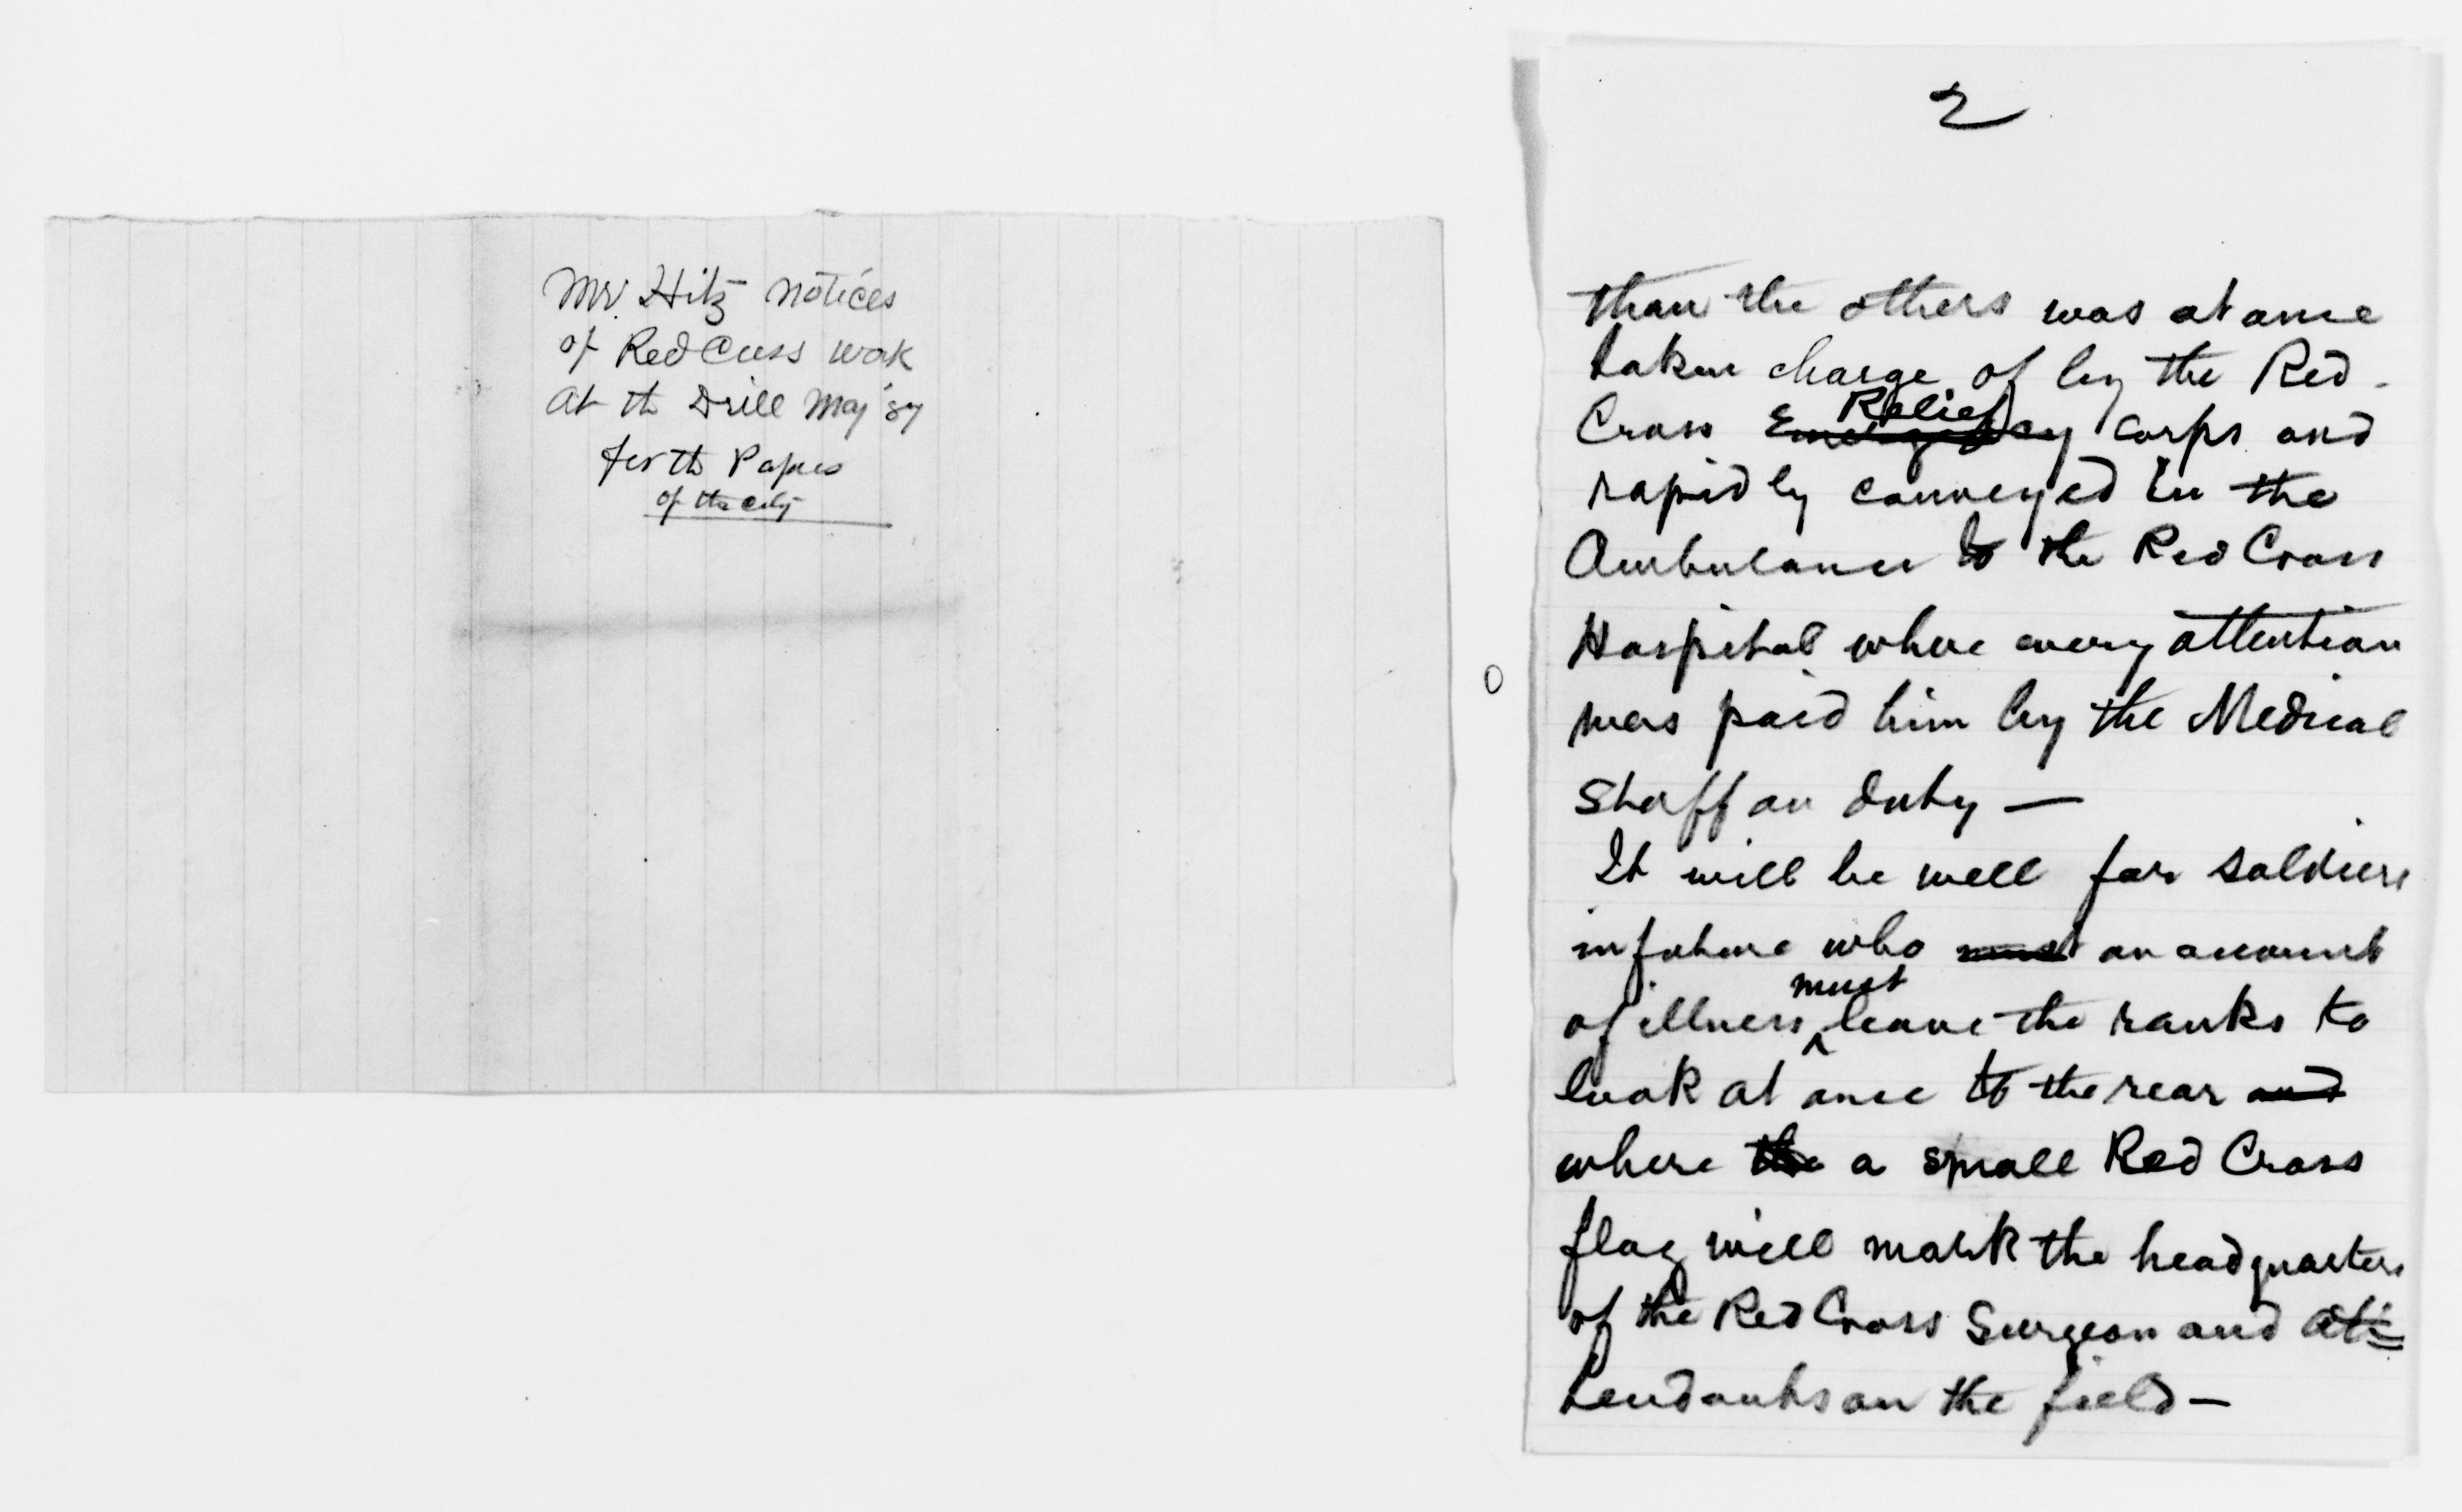 Mr. Hitz notices
of Red Cross work
At th Drill May '87
for th Papers
of the city
2
than the others was at once
taken charge of by the Red
Relief
Cross Emergency Corps and
rapidly conveyed in the
Ambulance to the Red Cross
Hospital where every attention
was paid him by the Medical
Staff on duty —
It will be well for soldiers
in future who must on account
must
of illness ^ leave the ranks to
look at once to the rear and
where the a small Red Cross
flag will mark the headquarters
of the Red Cross Surgeon and at=
tendants on the field —